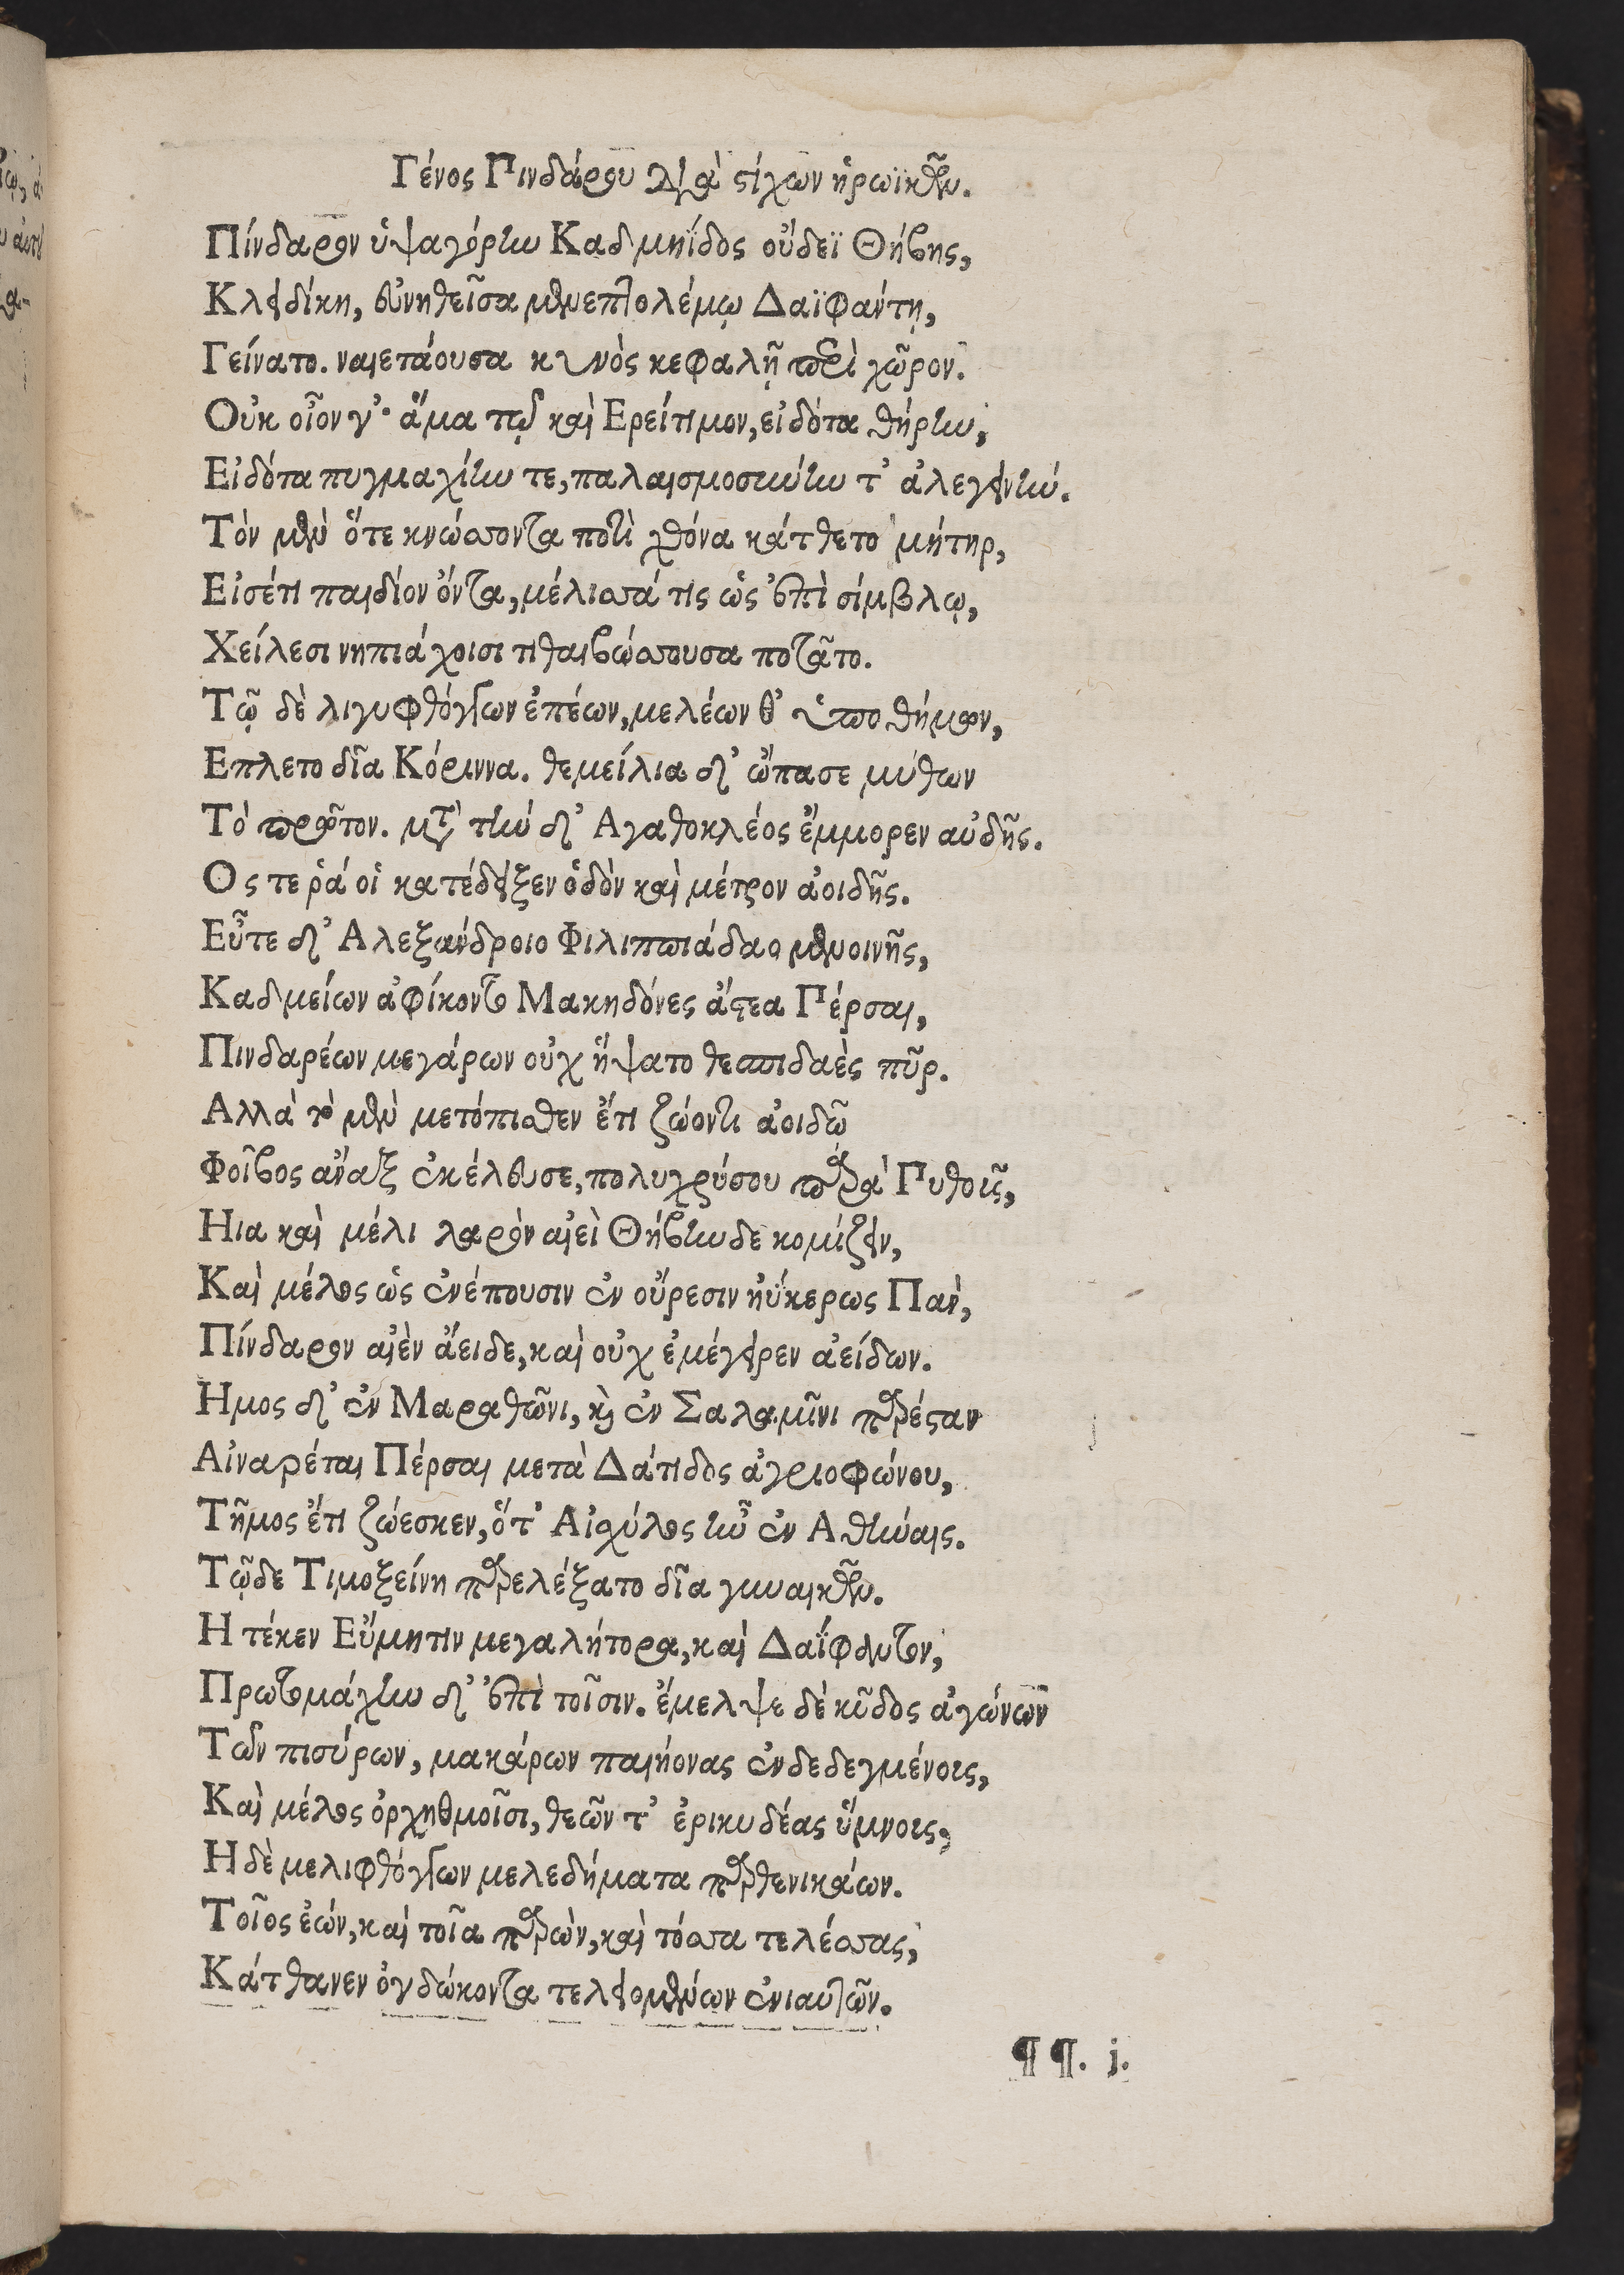 Γένος Πινδάρου διὰ στίχων ἡρωϊκῶν.
Πίνδαρον ὑψαγόρην Καδμηΐδος οὔδεϊ Θήβης,
Κλειδίκη, εὐνηθεῖσα μενεπτολέμῳ Δαϊφάντῃ,
Γείνατο. ναιετάουσα κυνὸς κεφαλῇ περὶ χῶρον.
Οὐκ οἶον γ'· ἅμα τῷ καὶ Ερείτιμον, εἰδότα θήρην,
Εἰδότα πυγμαχίην τε, παλαισμοσύνην τ' ἀλεγεινήν.
Τὸν μὲν ὅτε κνώσσοντα ποτὶ χθόνα κάτθετο μήτηρ,
Εἰσέτι παιδίον ὄντα, μέλισσά τις ὡς ἐπὶ σίμβλῳ,
Χείλεσι νηπιάχοισι τιθαιβώσσουσα ποτᾶτο.
Τῷ δὲ λιγυφθόγγων ἐπέων, μελέων θ' ὑποθήμων,
Επλετο δῖα Κόριννα. θεμείλια δ' ὤπασε μύθων
Τὸ πρῶτον. μετὰ τὴν δ' Αγαθοκλέος ἔμμορεν αὐδῆς.
Ος τε ῥά οἱ κατέδειξεν ὁδὸν καὶ μέτρον ἀοιδῆς.
Εὖτε δ' Αλεξάνδροιο Φιλιππιάδαο μενοινῆς,
Καδμείων ἀφίκοντο Μακηδόνες ἄστεα Πέρσαι,
Πινδαρέων μεγάρων οὐχ ἥψατο θεσπιδαὲς πῦρ.
Αλλὰ τὸ μὲν μετόπισθεν ἔτι ζώοντι ἀοιδῷ
Φοῖβος ἄναξ ἐκέλευσε, πολυχρύσου παρὰ Πυθοῖς,
Ηια καὶ μέλι λαρὸν αἰεὶ Θήβηνδε κομίζειν,
Καὶ μέλος ὡς ἐνέπουσιν ἐν οὔρεσιν ἠΰκερως Πὰν,
Πίνδαρον αἰὲν ἄειδε, καὶ οὐχ ἐμέγειρεν ἀείδων.
Ημος δ' ἐν Μαραθῶνι, καὶ ἐν Σαλαμῖνι παρέσταν
Αἰναρέται Πέρσαι μετὰ Δάτιδος ἀγριοφώνου,
Τῆμος ἔτι ζώεσκεν, ὅτ' Αἰσχύλος ἦν ἐν Αθήναις.
Τῷδε Τιμοξείνη παρελέξατο δῖα γυναικῶν.
Η τέκεν Εὔμητιν μεγαλήτορα, καὶ Δαΐφαντον,
Πρωτομάχην δ' ἐπὶ τοῖσιν. ἔμελψε δὲ κῦδος ἀγώνων
Τῶν πισύρων, μακάρων παιήονας ἐνδεδεγμένοις,
Καὶ μέλος ὀρχηθμοῖσι, θεῶν τ' ἐρικυδέας ὕμνοις,
Η δὲ μελιφθόγγων μελεδήματα παρθενικάων.
Τοῖος ἐών, καὶ τοῖα παρὼν, καὶ τόσσα τελέσσας,
Κάτθανεν ὀγδώκοντα τελειομένων ἐνιαυτῶν.
¶ ¶. j.